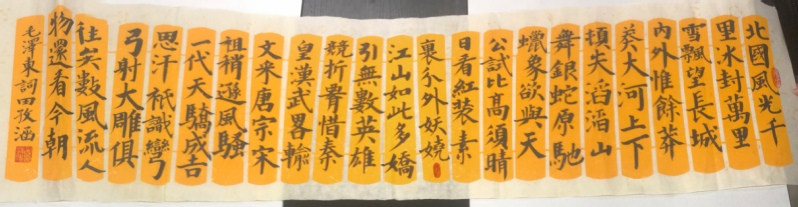 北國風光千
里冰封萬里
雪飄望長城
内外惟餘莽
莽大河上下
頓失滔滔山
舞銀蛇原馳
蠟象欲與天
公試比高須晴
日看紅裝素
裹分外妖嬈
江山如此多嬌
引無數英雄
競折腰惜秦
皇漢武畧輸
文采唐宗宋
祖稍遜風騷
一代天驕成吉
思汗祇識彎
弓射大雕俱
往矣數風流人
物還看今朝
毛澤東詞田孜涵